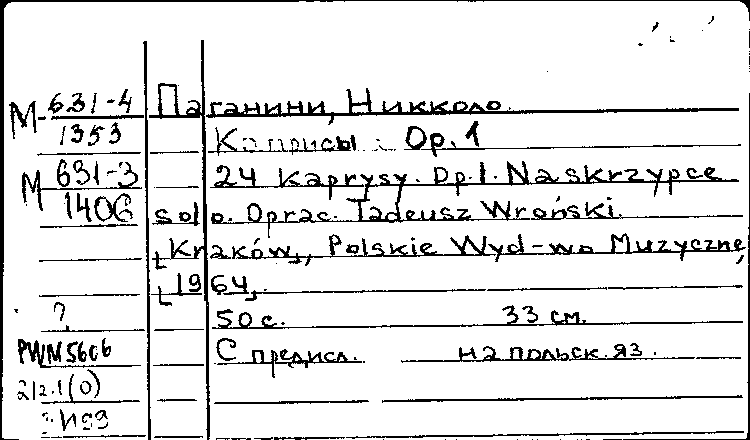 М-631-4 Паганини, Никколо.
1353 Каприсы. Op. 1
М 631-3 24 Kaprysy. Op. 1. Na skrzypce
1406 solo. Oprac. Tadeusz Wroński.
[Kraków], Polskie Wyd-wo Muzyczne,
[1964].
? 50 с. 33 см.
PWM 5606 С предисл. на польск. яз.
2/2.1(0)